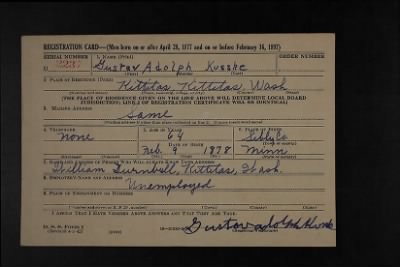 REGISTRATION CARD—(Men born on or after April 28, 1877 and on or before February 16, 1897)
SERIAL NUMBER 1. NAME (Print) ORDER NUMBER
Gustav Adolph
(First) (Middle) (Last)
2. PLACE OF RESIDENCE (Print)
Kittitas, Kittitas, Wash
[THE PLACE OF RESIDENCE GIVEN ON THE LINE ABOVE WILL DETERMINE LOCAL BOARD
JURISDICTION; LINE 2 OF REGISTRATION CERTIFICATE WILL BE IDENTICAL]
3. MAILING ADDRESS
Same
4. TELEPHONE 5. AGE IN YEARS 6. PLACE OF BIRTH
None 64 Sibley Co
DATE OF BIRTH
Feb. 9 1878 Minn
7. NAME AND ADDRESS OF PERSON WHO WILL ALWAYS KNOW YOUR ADDRESS
William Turnbull, Kittitas, Wash.
8. EMPLOYER'S NAME AND ADDRESS
Unemployed
9. PLACE OF EMPLOYMENT OR BUSINESS
I AFFIRM THAT I HAVE VERIFIED ABOVE ANSWERS AND THAT THEY ARE TRUE.
D. S. S. Form 1